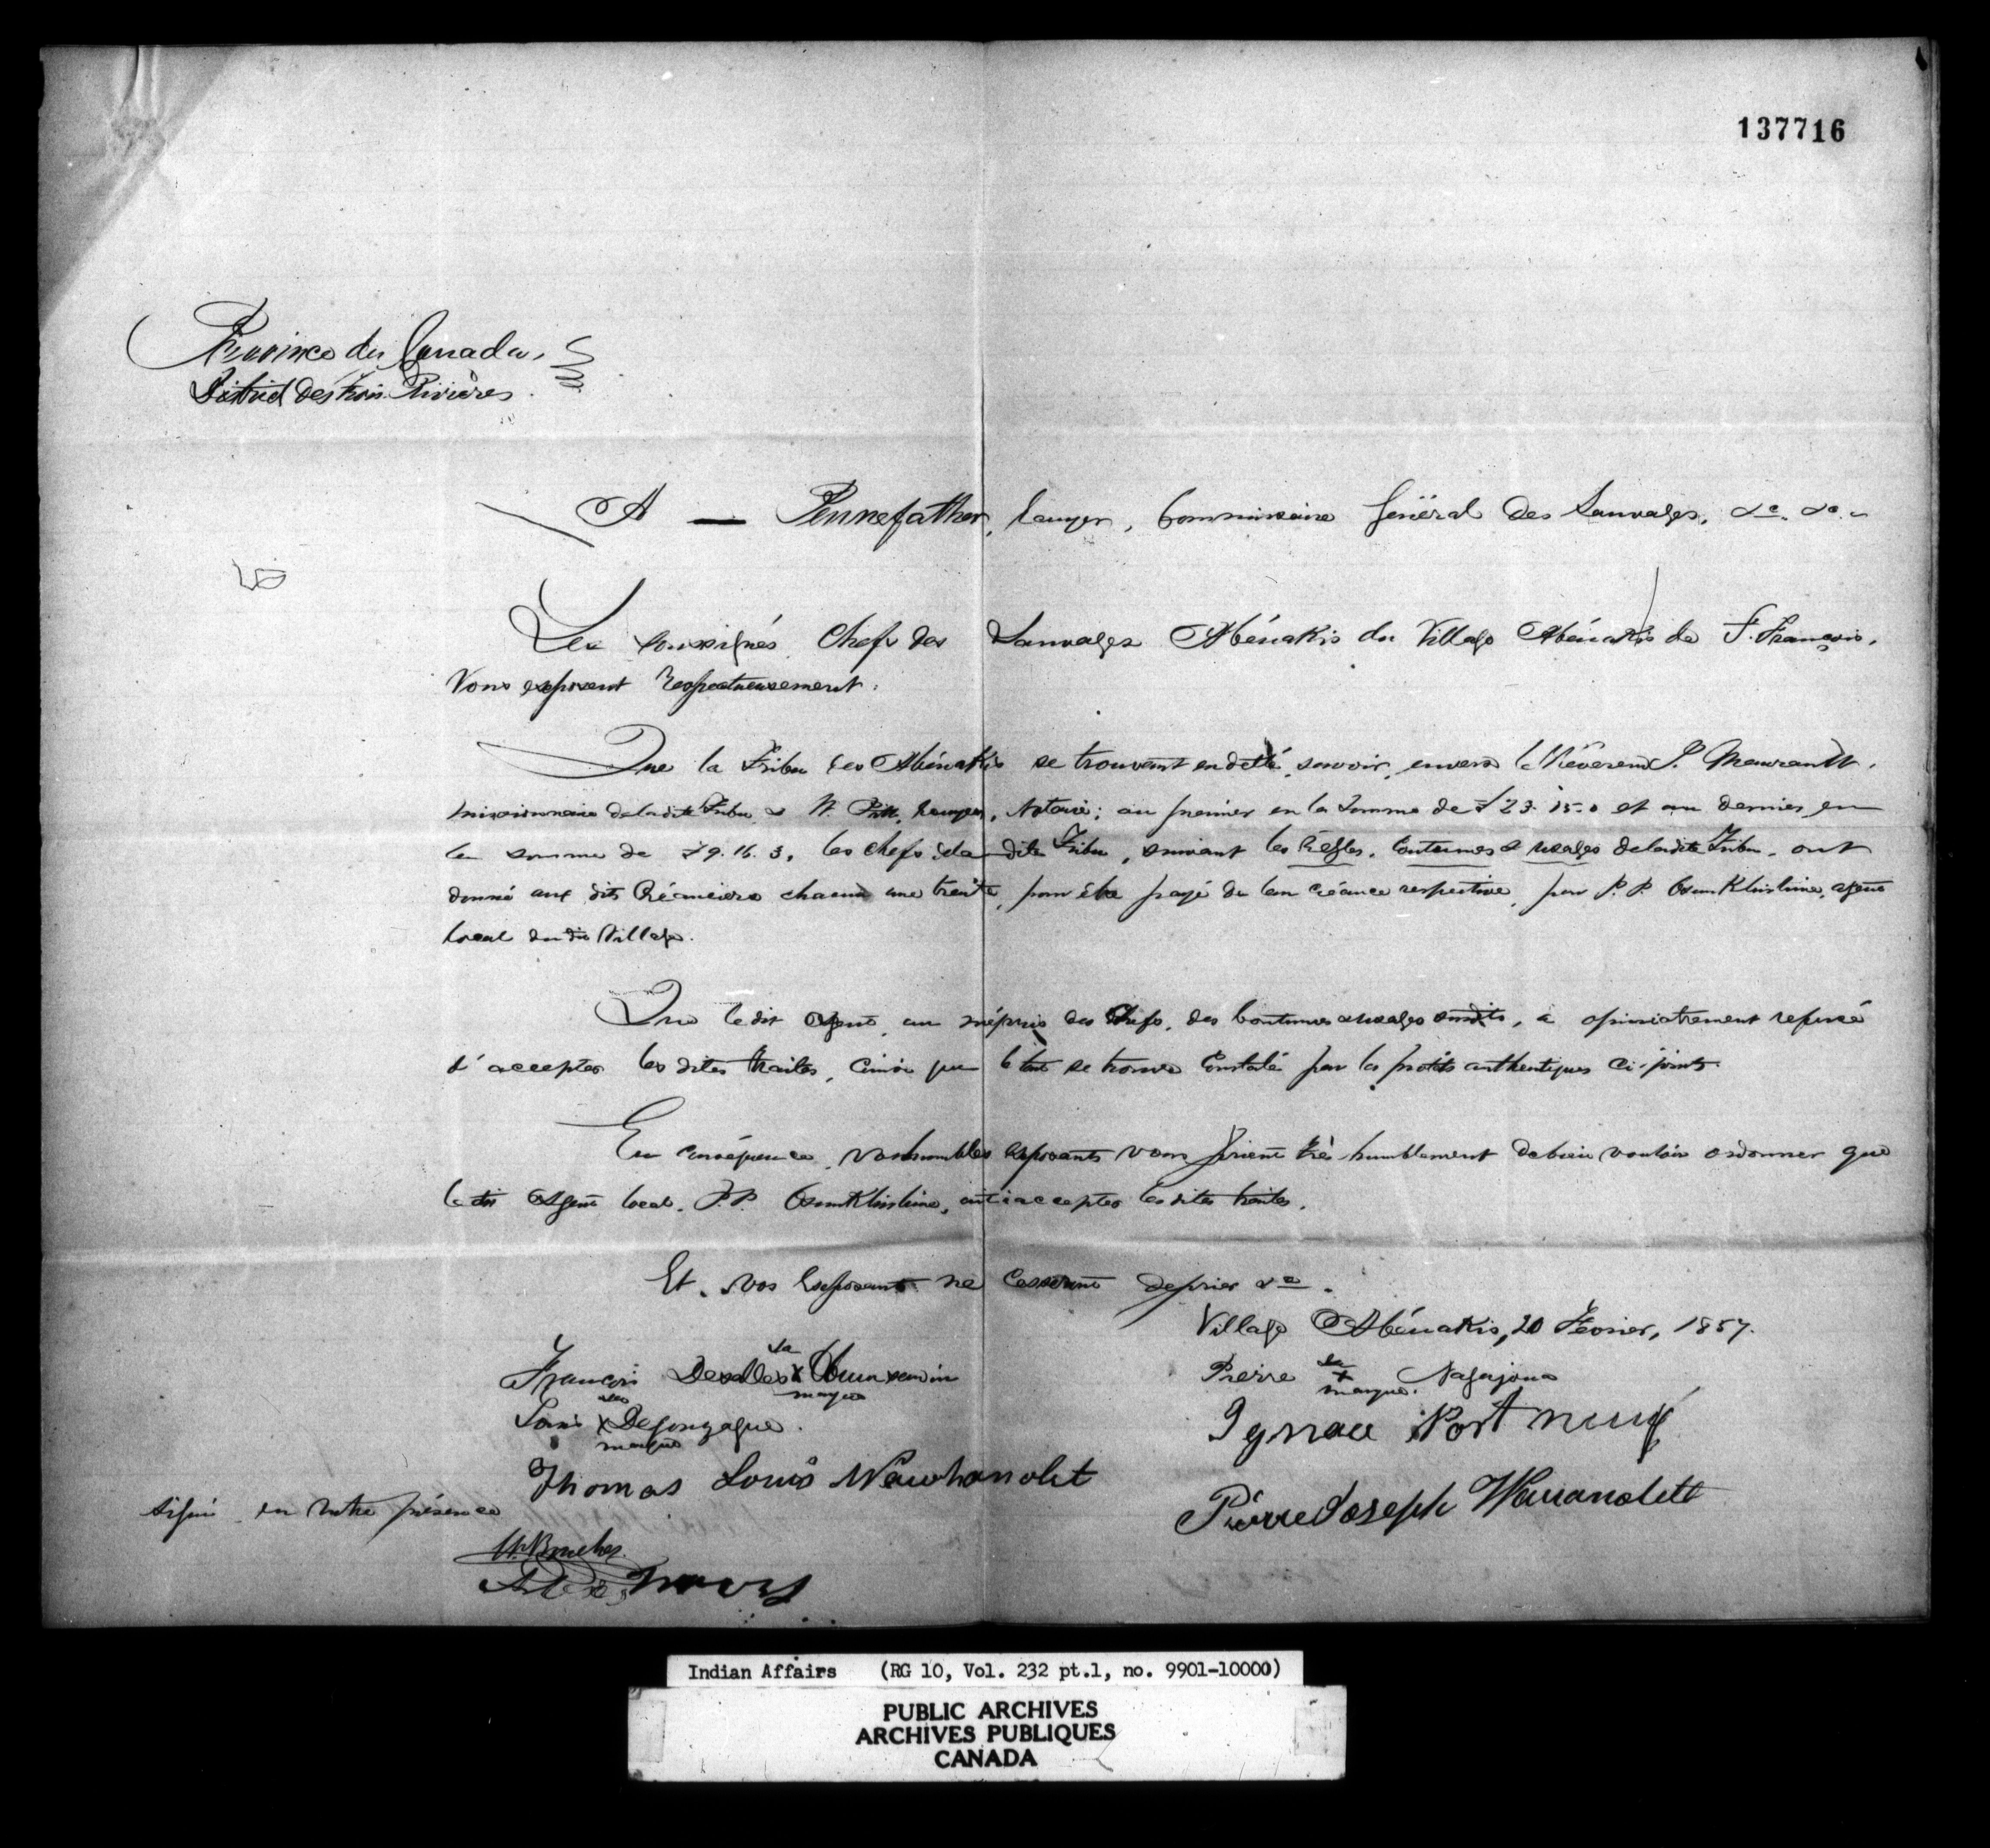 137716
Province du Canada,
District des Trois Rivières.
A — Pennefather, Ecuyer, Commissaire Général des Sauvages, &c. &c.
Les soussignés Chefs des Sauvages Abénakis du Village Abénakis de S. François,
Vous exposent Respectueusement:
Que la Tribu des Abénakis se trouvant endetté, savoir, envers le Révérend J. Maurault,
missionnaire de la dite Tribu, & W. Pitt, Ecuyer, Notaire; au premier en la Somme de £23. 15. 0 et au dernier en
la somme de £9. 16. 3, les chefs de la dite Tribu, suivant les Règles, Coutumes & usages de la dite Tribu, ont
donné aux dits Créanciers chacun une traite, pour être payé de leur créance respective, par P. P. Osunkhirhine, agent
local du dit Village.
Que le dit Agent, au mépris des Chefs, des Coutumes & usages susdits, a opiniatrement refusé
d'accepter les dites traites, ainsi que le tout se trouve Constaté par les protêts authentiques ci-joints.
En conséquence, vos humbles exposants vous prient très humblement de bien vouloir ordonner que
le dit Agent local, P. P. Osunkhirhine, ait à accepter les dites traites.
Et vos Exposants ne cesseront de prier &c.
Village Abénakis, 20 Février, 1857.
François Desalles sa X marque
Louis sa X marque Degonzague.
Thomas Louis Wawhanolet
Pierre sa + marque. Nagajoua
Ignace Portneuf
Pierre Joseph Wawanolett
Signé en notre présence
Indian Affairs (RG 10, Vol. 232 pt.1, no. 9901-10000)
PUBLIC ARCHIVES
ARCHIVES PUBLIQUES
CANADA